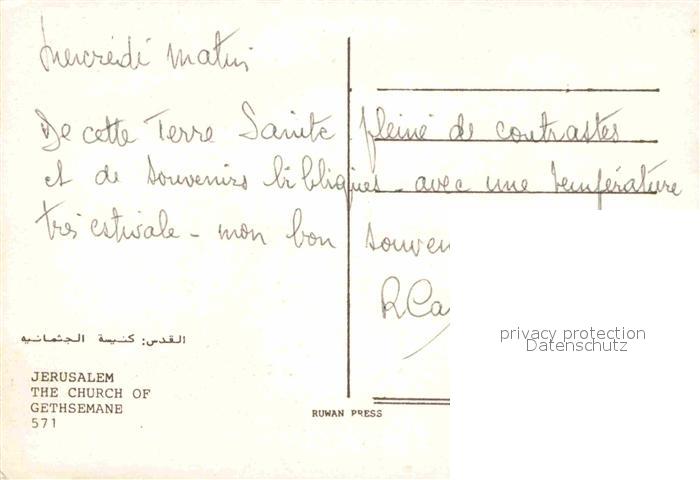 Mercrédi matin
De cette Terre Sainte pleine de contrastes
et de souvenirs bibliques - avec une température
très estivale - mon bon souven
R Ca
privacy protection
Datenschutz
القدس: كنيسة الجثمانيه
JERUSALEM
THE CHURCH OF
GETHSEMANE
571
RUWAN PRESS